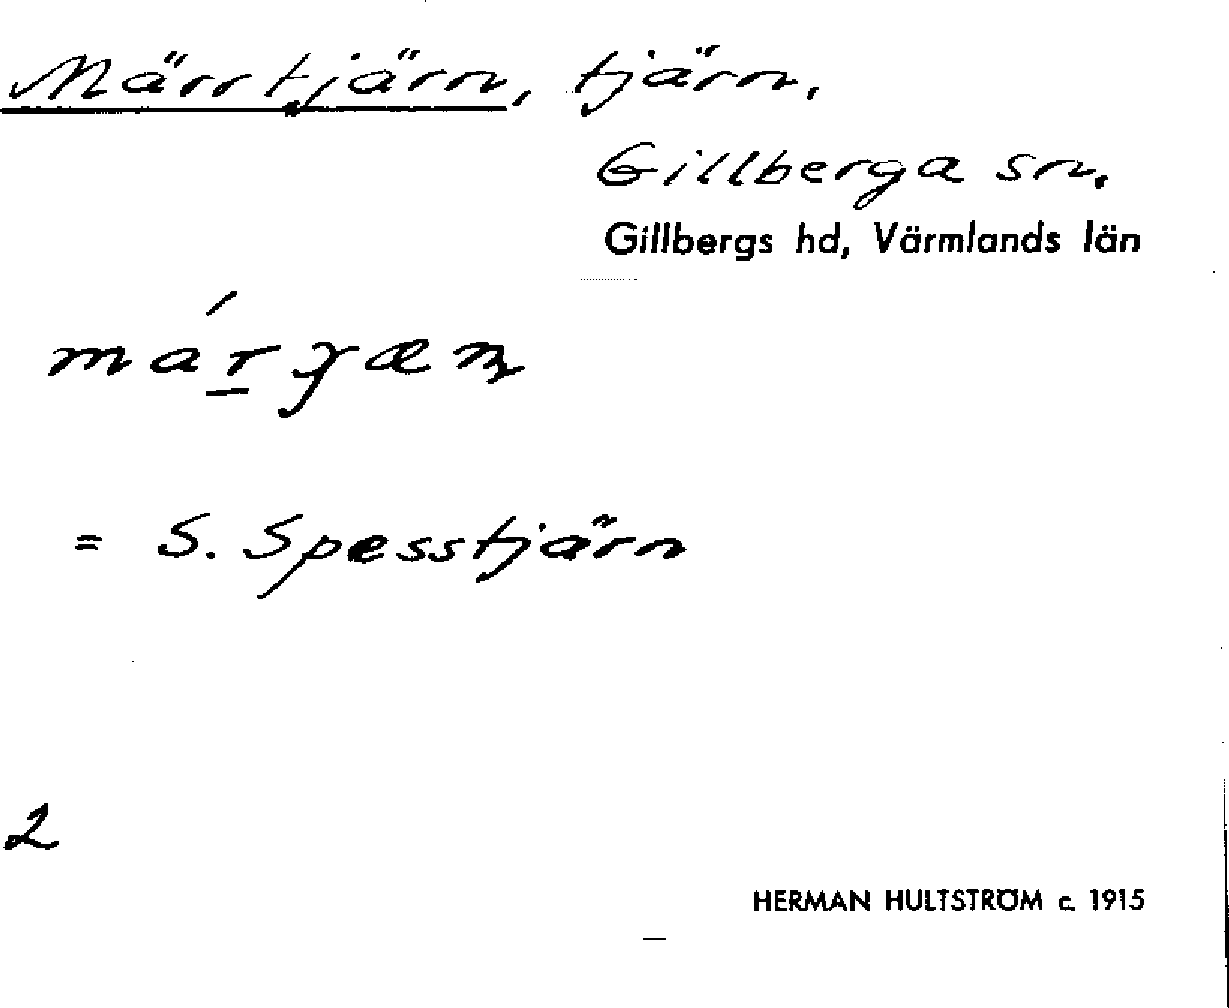 Märrtjärn, tjärn,
Gillberga sn,
Gillbergs hd, Värmlands län
= S. Spesstjärn
2
HERMAN HULTSTRÖM c. 1915